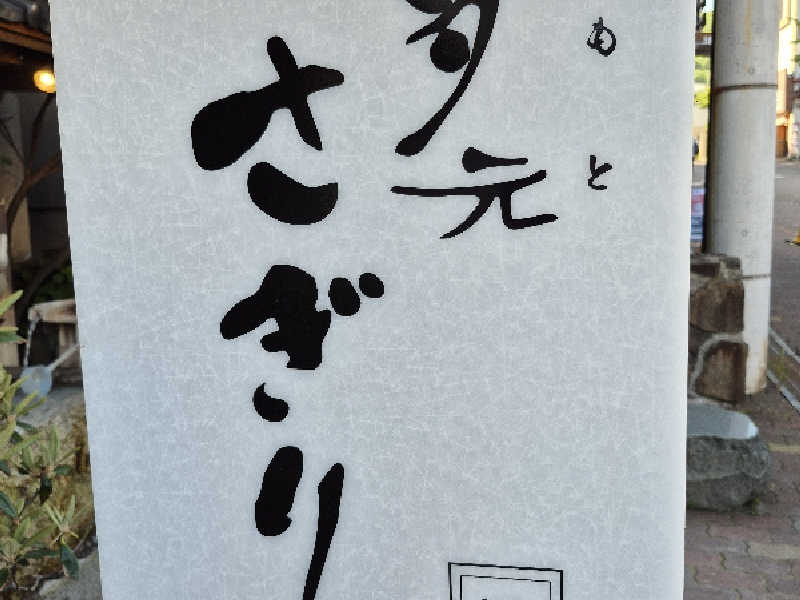 もと
元
さぎり